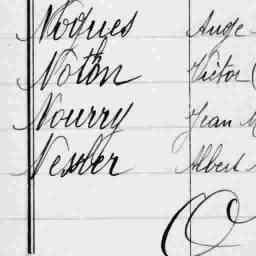 Nogues Ange
Noton Victor (
Nourry Jean M
Nessler Albert
O